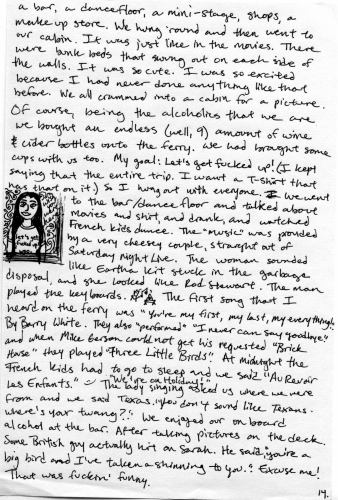 a bar, a dancefloor, a mini-stage, shops, a
make up store. We hung 'round and then went to
our cabin. It was just like in the movies. There
were bunk beds that swung out on each side of
the walls. It was so cute. I was so excited
because I had never done anything like that
before. We all crammed into a cabin for a picture.
Of course, being the alcoholics that we are
we bought an endless (well, 9) amount of wine
& cider bottles onto the ferry. We had brought some
cups with us too. My goal: Let's get fucked up! (I kept
saying that the entire trip. I want a T-shirt that
has that on it.) So I hung out with everyone. We went
to the bar/dancefloor and talked about
movies and shit, and drank, and watched
French kids dance. The "music" was provided
by a very cheesey couple, straight out of
Saturday Night Live. The woman sounded
like Eartha Kit stuck in the garbage
disposal, and she looked like Rod Stewart. The man
played the keyboards. The first song that I
heard on the ferry was "You're my first, my last, my everything"
By Barry White. They also "performed" "I never can say goodbye"
and when Mike Gerson could not get his requested "Brick
House" they played "Three Little Birds". At midnight the
French kids had to go to sleep and we said "Au Revoir
Les Enfants." The lady singing asked us where we were
"We're on Holiday!"
from and we said Texas. "You don't sound like Texans.
where's your twang?" We enjoyed our on board
alcohol at the bar. After talking pictures on the deck.
Some British guy actually hit on Sarah. He said, "you're a
big bird and I've taken a shinning to you." Excuse me!
That was fuckin' funny.
let's get
fucked up
14.